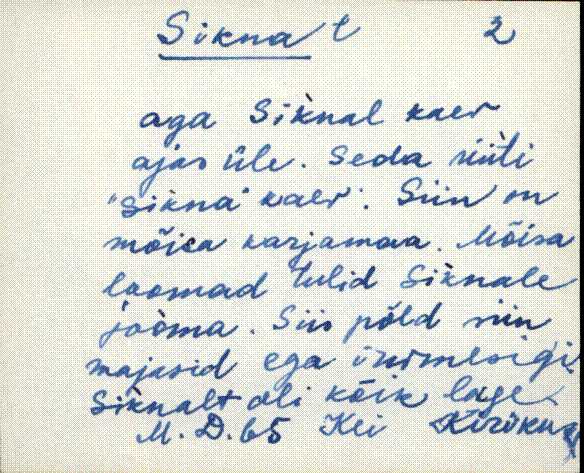 Siknat 2
aga Sìknal kaer
ajas üle. Seda viiti
"Sikna" kaer. Siin on
mõisa karjamaa. Mõisa
loomad tulid Sìknale
jòòma. Siis põld siin
majasid ega inimesigi.
Sìknalt oli kõik lage.
M. D. 65 Kei